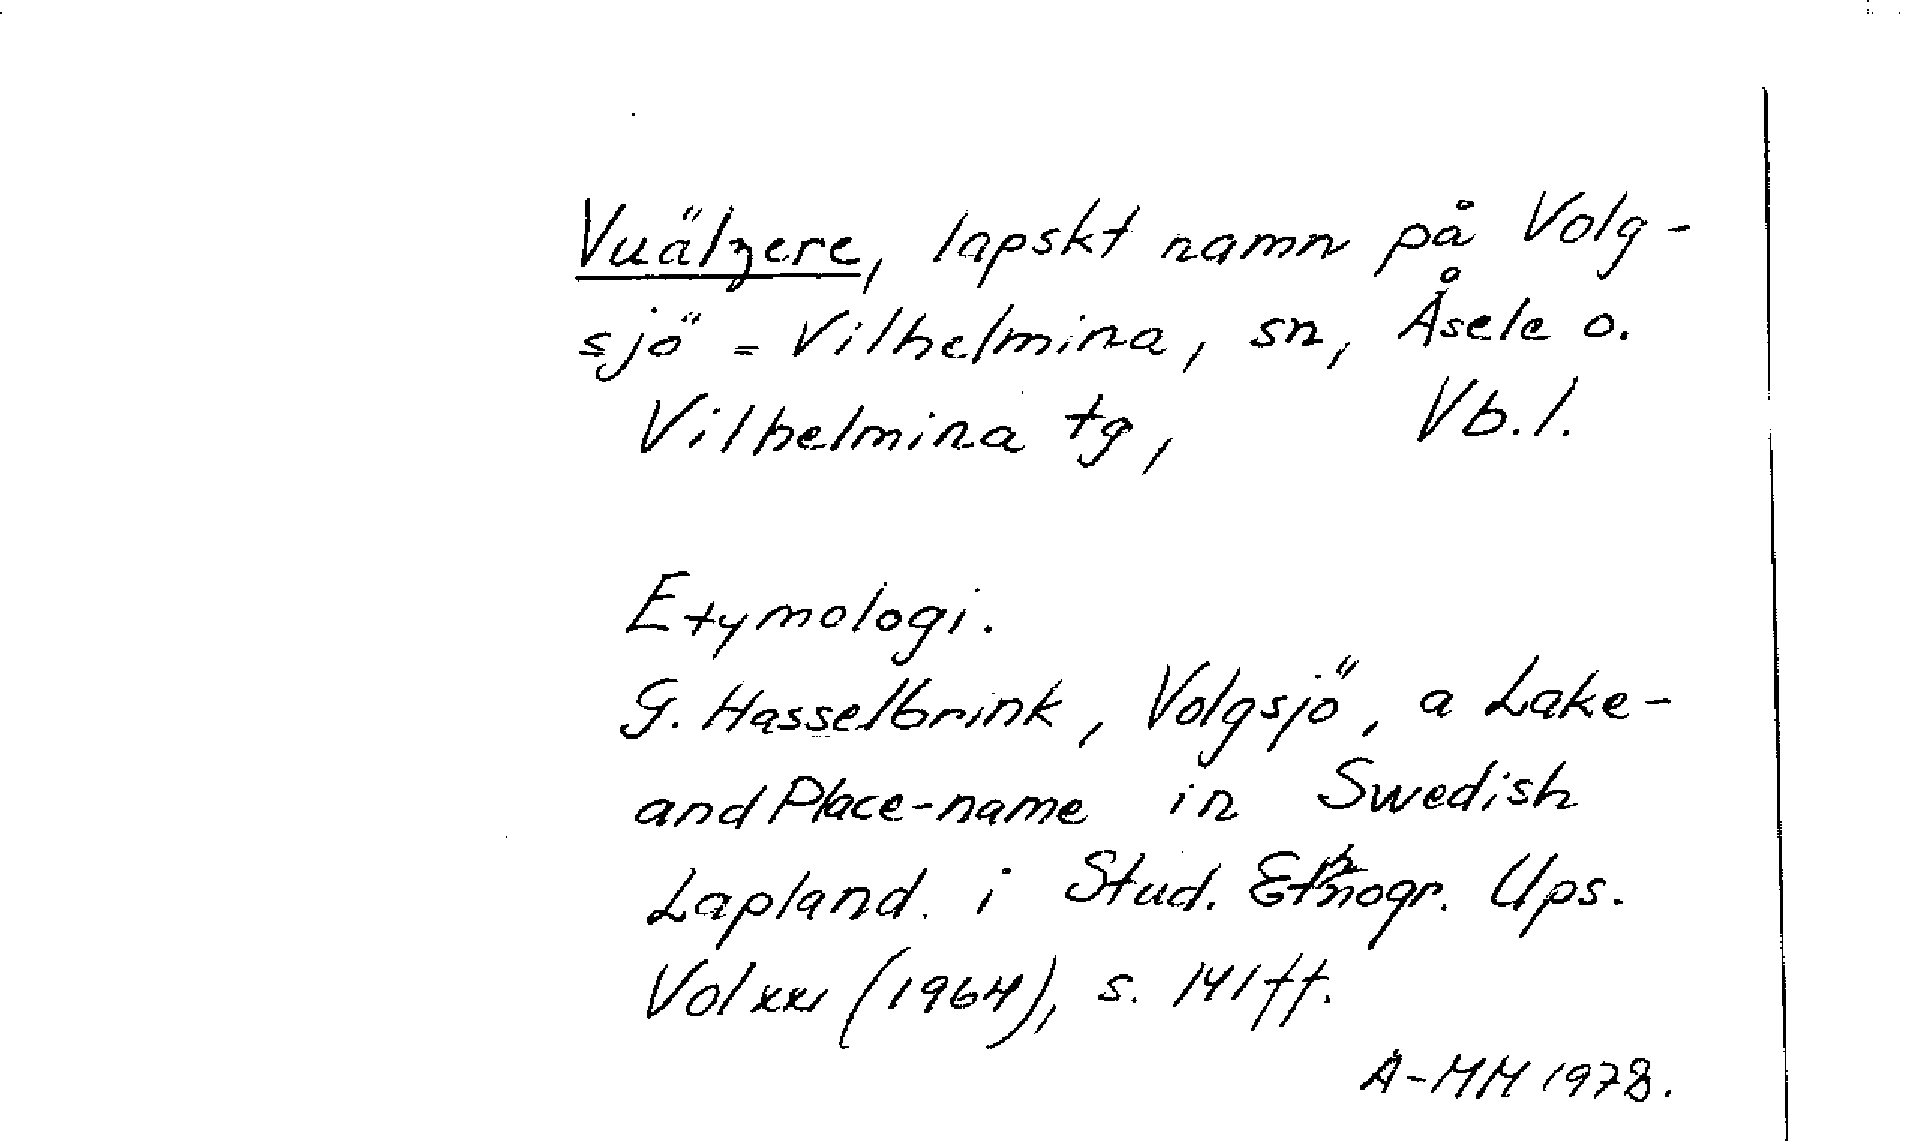 Vuälgere, lapskt namn på Volg-
sjö = Vilhelmina, sn, Åsele o.
Vilhelmina tg, Vb.l.
Etymologi.
G. Hasselbrink, Volgsjö, a Lake-
and Place-name in Swedish
Lapland. i Stud. Ethnogr. Ups.
Vol xxi (1964), s. 141 ff.
A-MM 1978.